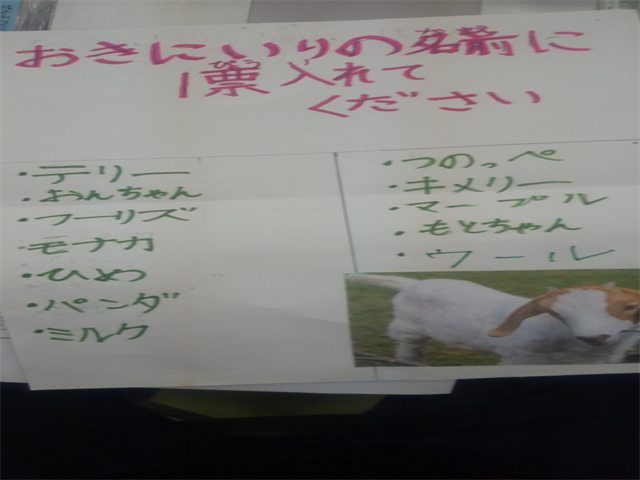 おきにいりの名前に
1票入れて
ください
・テリー
・よんちゃん
・フーリズ
・モナカ
・ひめ
・パンダ
・ミルク
・つのっぺ
・キメリー
・マーブル
・もとちゃん
・ウール